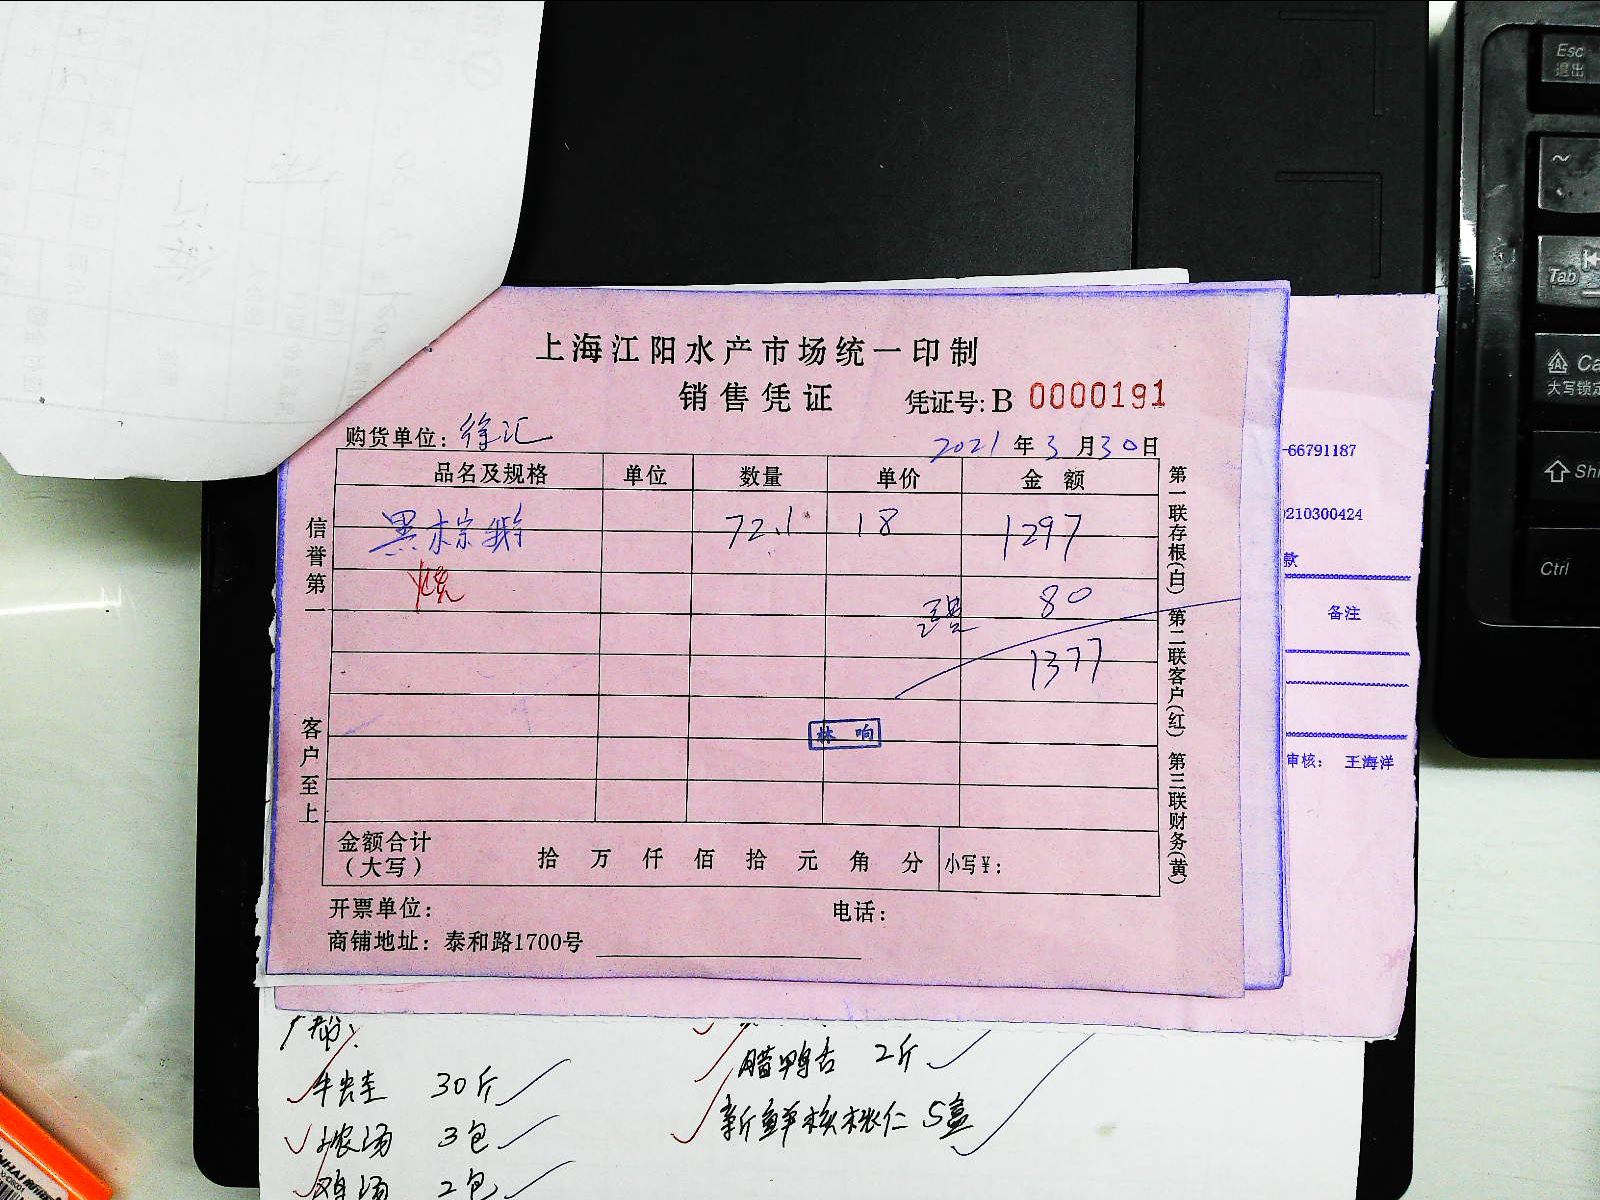 上海江阳水产市场统一印制
销售凭证 凭证号: B 0000191
购货单位: 徐汇 2021 年 3 月 30 日
品名及规格 单位 数量 单价 金额
黑棕鹅 72.1 18 1297
烧
80
1377
林 响
金额合计
(大写) 拾 万 仟 佰 拾 元 角 分 小写¥:
开票单位: 电话:
商铺地址: 泰和路1700号
信誉第一
客户至上
第一联存根(白) 第二联客户(红) 第三联财务(黄)
-66791187
210300424
款
备注
审核: 王海洋
牛蛙 30斤
浓汤 3包
鸡汤 2包
腊鸭舌 2斤
新鲜核桃仁 5盒
Esc
退出
~
Tab
Ca
大写锁定
Shi
Ctrl